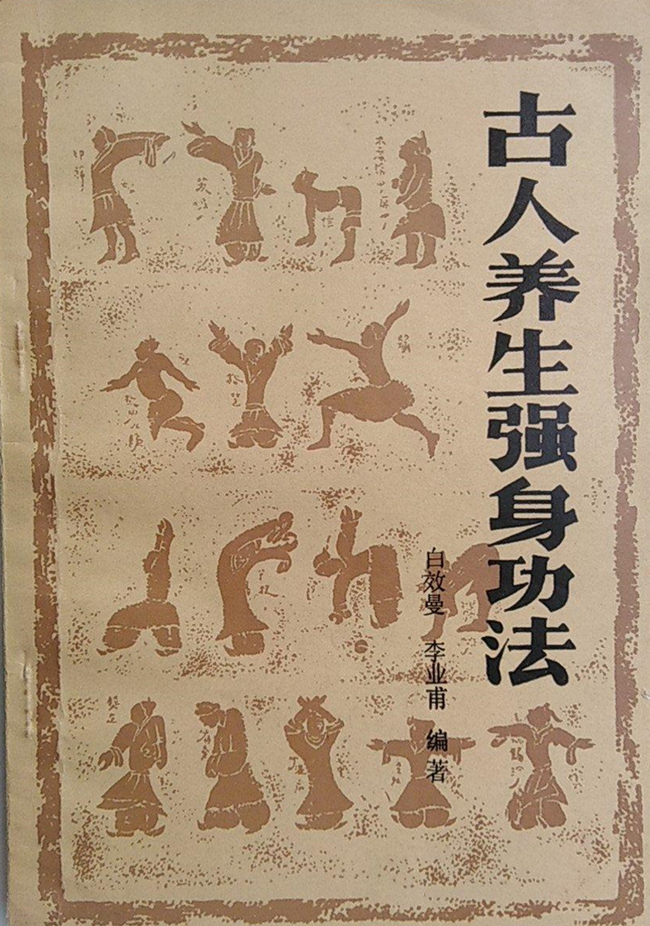 古人养生强身功法
白效曼 李业甫 编著